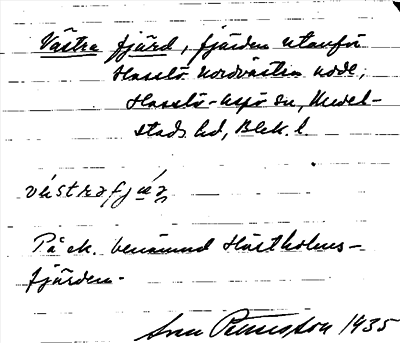 Västra fjärd, fjärden utanför
Hasslö nordvästra udde,
Hasslö-Aspö sn, Medel-
stads hd, Blek. l.
västrafjæ̨
På ek. benämnd Hästholms-
fjärden.
Sven Benson 1935